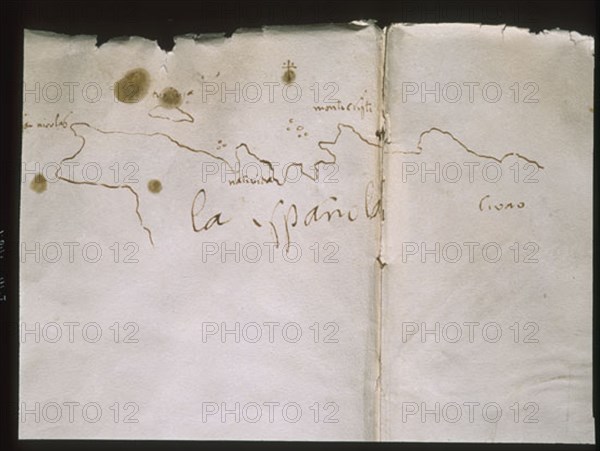 monte cristi
nicolas
natiuidad
la española
ciuao
PHOTO 12 PHOTO 12 PHOTO 12
PHOTO 12 PHOTO 12 PHOTO 12
PHOTO 12 PHOTO 12 PHOTO 12
PHOTO 12 PHOTO 12 PHOTO 12
PHOTO 12 PHOTO 12 PHOTO 12